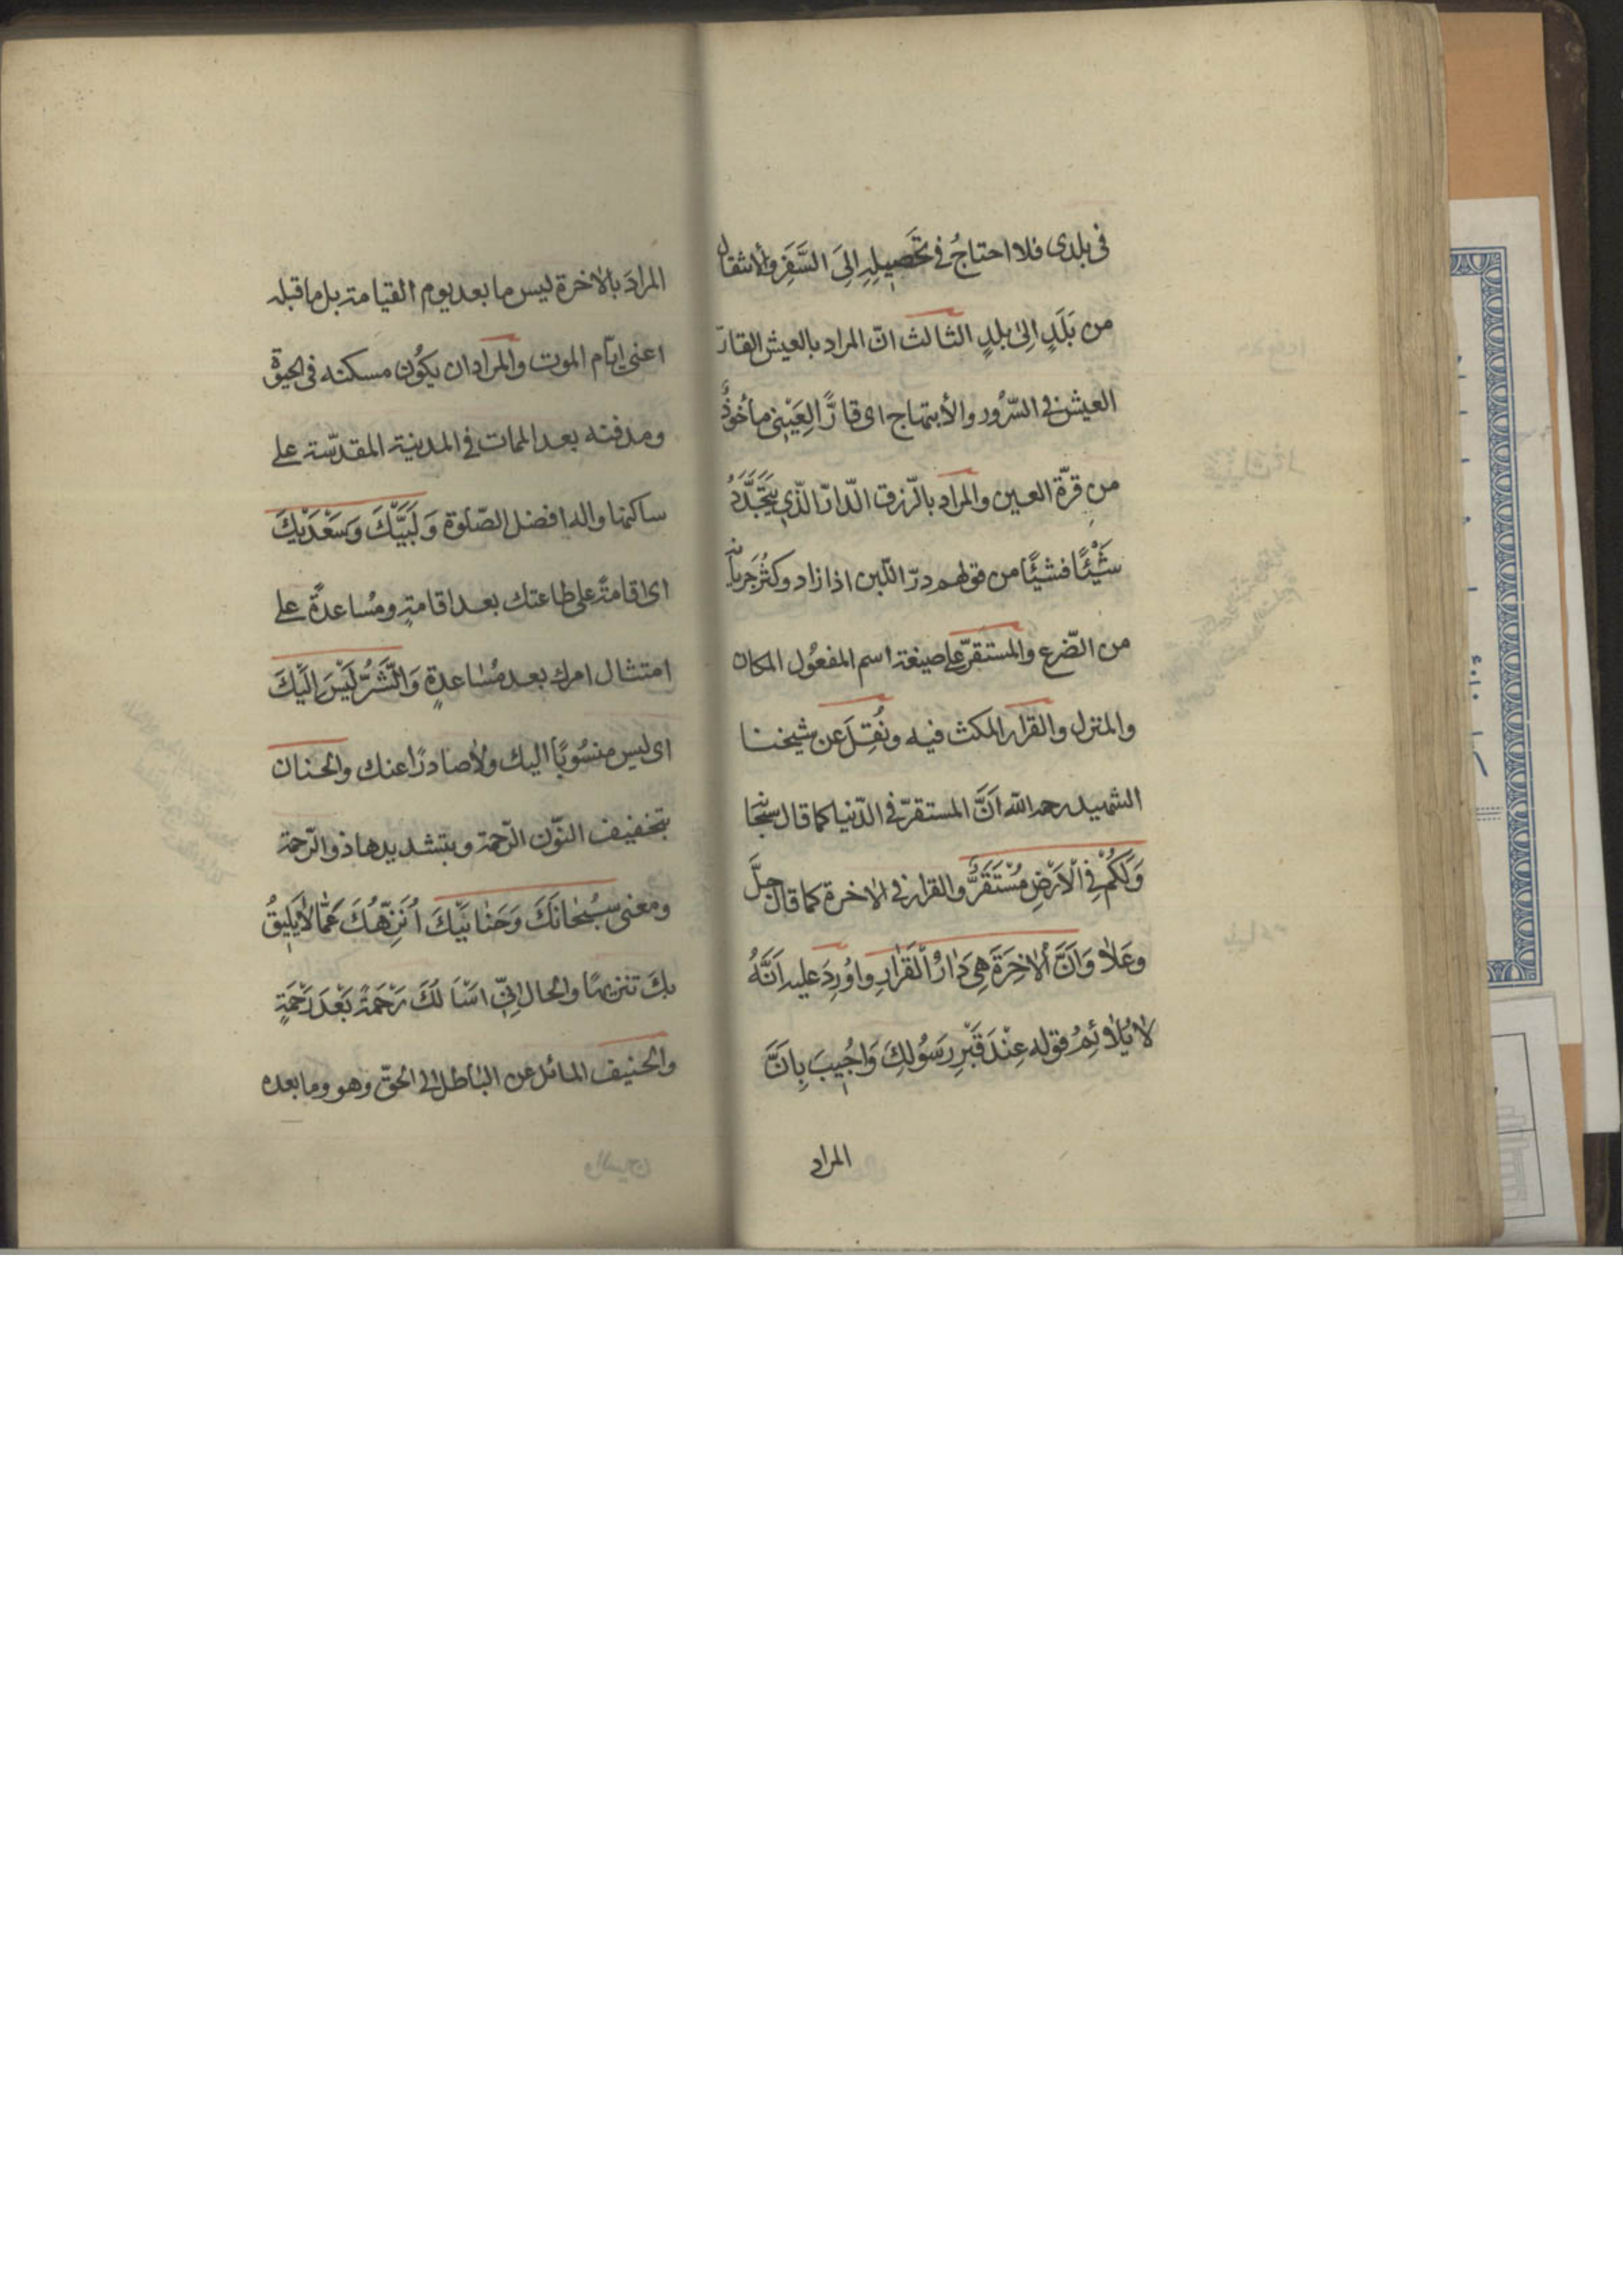 فى بلدى فلا احتاجُ فى تَحصيلِهِ اِلىَ السَّفَرِ والأنتقال
من بَلَدٍ اِلىٰ بلدٍ الثالث انّ المراد بالعيش القارّ
العيش فى السّرُور والأبتهاج اى قارًّا لِعَيْنِى مأخوذٌ
من قرّة العين والمراد بالرّزق الدّارّ الّذى يَتَجَدَّدُ
شَيْئًا فشيئًا من قولهم درّ اللّبن اذا زاد وكَثُرَ جَريانه
من الضّرع والمستقرّ على صيغة اسم المفعُول المكان
والمنزل والقرار المكث فيه ونُقِلَ عن شيخنا
الشهيد رحمه الله اَنَّ المستقرّ فى الدّنيا كما قال سبحانه
وَلَكُمْ فِى الْاَرْضِ مُسْتَقَرٌّ والقرار فى الاخرة كما قال جلَّ
وعَلاٰ وَاَنَّ ألاٰخِرَةَ هِىَ دٰارُ الْقَرٰارِ واوُرِدَ عليه اَنَّهُ
لاٰ يُلاٰئِمُ قوله عِنْدَ قَبْرِ رَسُولِكَ وَاجُيِبَ بِاَنَّ
المراد
المرادَ بالاٰخرة ليس ما بعد يوم القيامة بل ما قبله
اعنى ايّام الموت والمراد ان يكوُن مسكنه فى الحيوة
ومدفنه بعد الممات فى المدينة المقدّسة على
ساكنها واله افضل الصّلوة وَلَبَيَّكَ وَسَعْدَيْكَ
اى اقامةً على طاعتك بعد اقامةٍ ومُساعدةً على
امتثال امرك بعد مُسٰاعدةٍ وَالشَّرُّ لَيْسَ اِلَيْكَ
اى ليس منسُوبًا اليك ولاٰ صادرًا عنك والحنان
بتخفيف النّون الرّحمة وبتشديدها ذو الرّحمة
ومعنى سُبْحٰانَكَ وَحَنٰانَيْكَ اُنَزِّهُكَ عَمّٰا لاٰ يَلِيقُ
بِكَ تنزيهًا والحال اِنّىِ اَسْاَلُكَ رَحْمَةً بَعْدَ رَحْمَةٍ
والحنيف المائل عن الباطل الى الحقّ وهو وما بعده